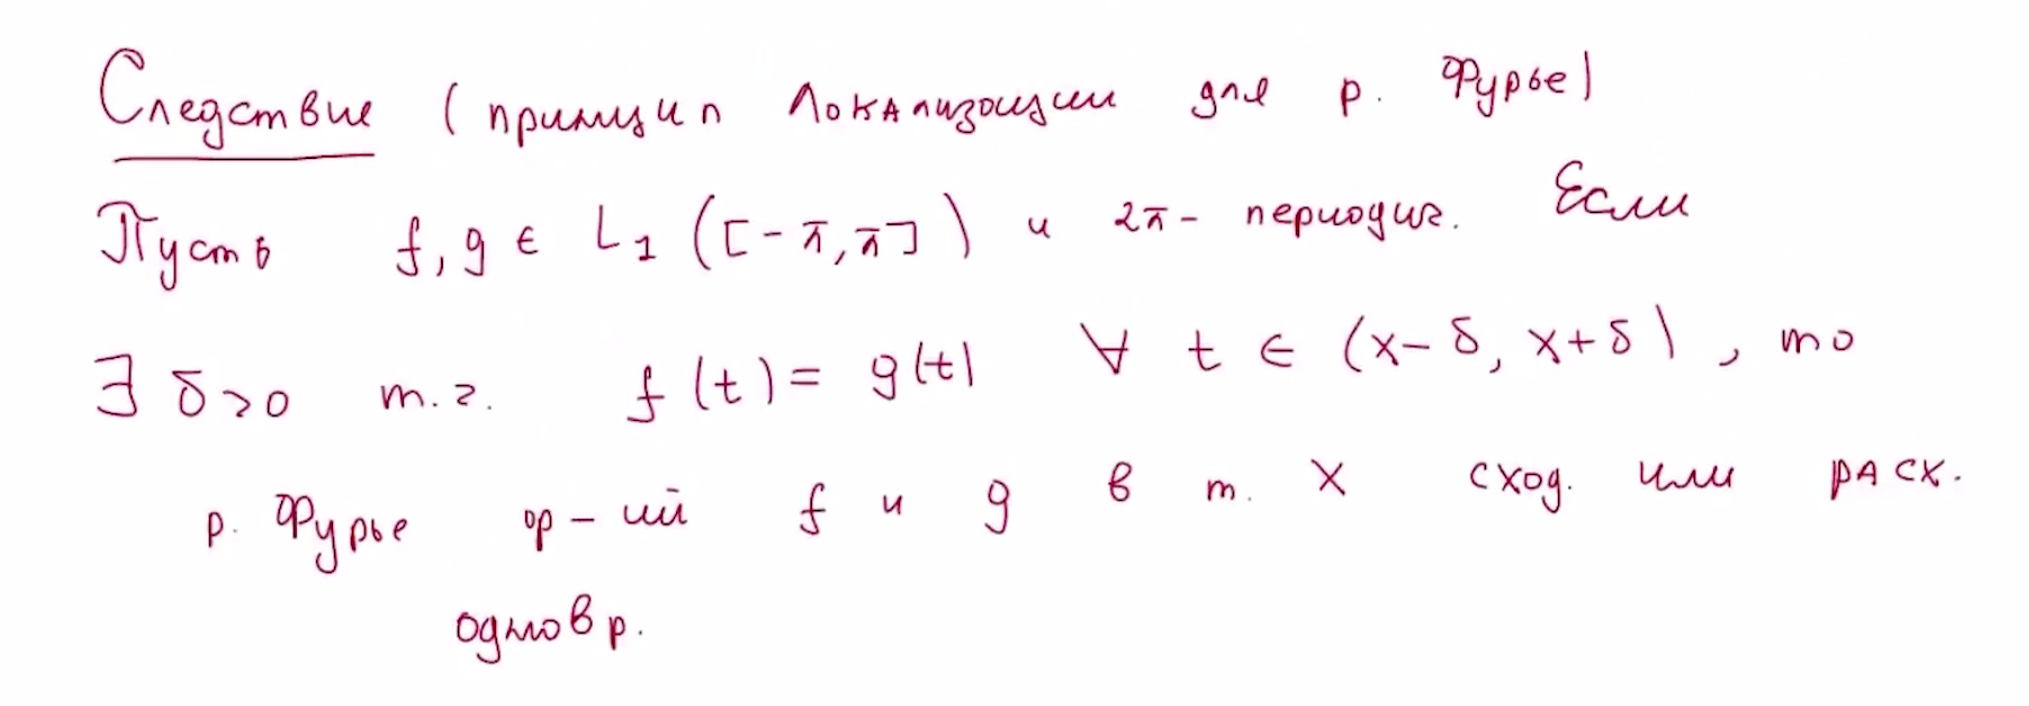 Следствие (принцип локализации для р. Фурье)
Пусть f, g ∈ L₁ ([-π, π]) и 2π- периодич. Если
∃ δ>0 т.ч. f(t) = g(t) ∀ t ∈ (x-δ, x+δ), то
р. Фурье ф-ий f и g в т. x сход. или расх.
одновр.